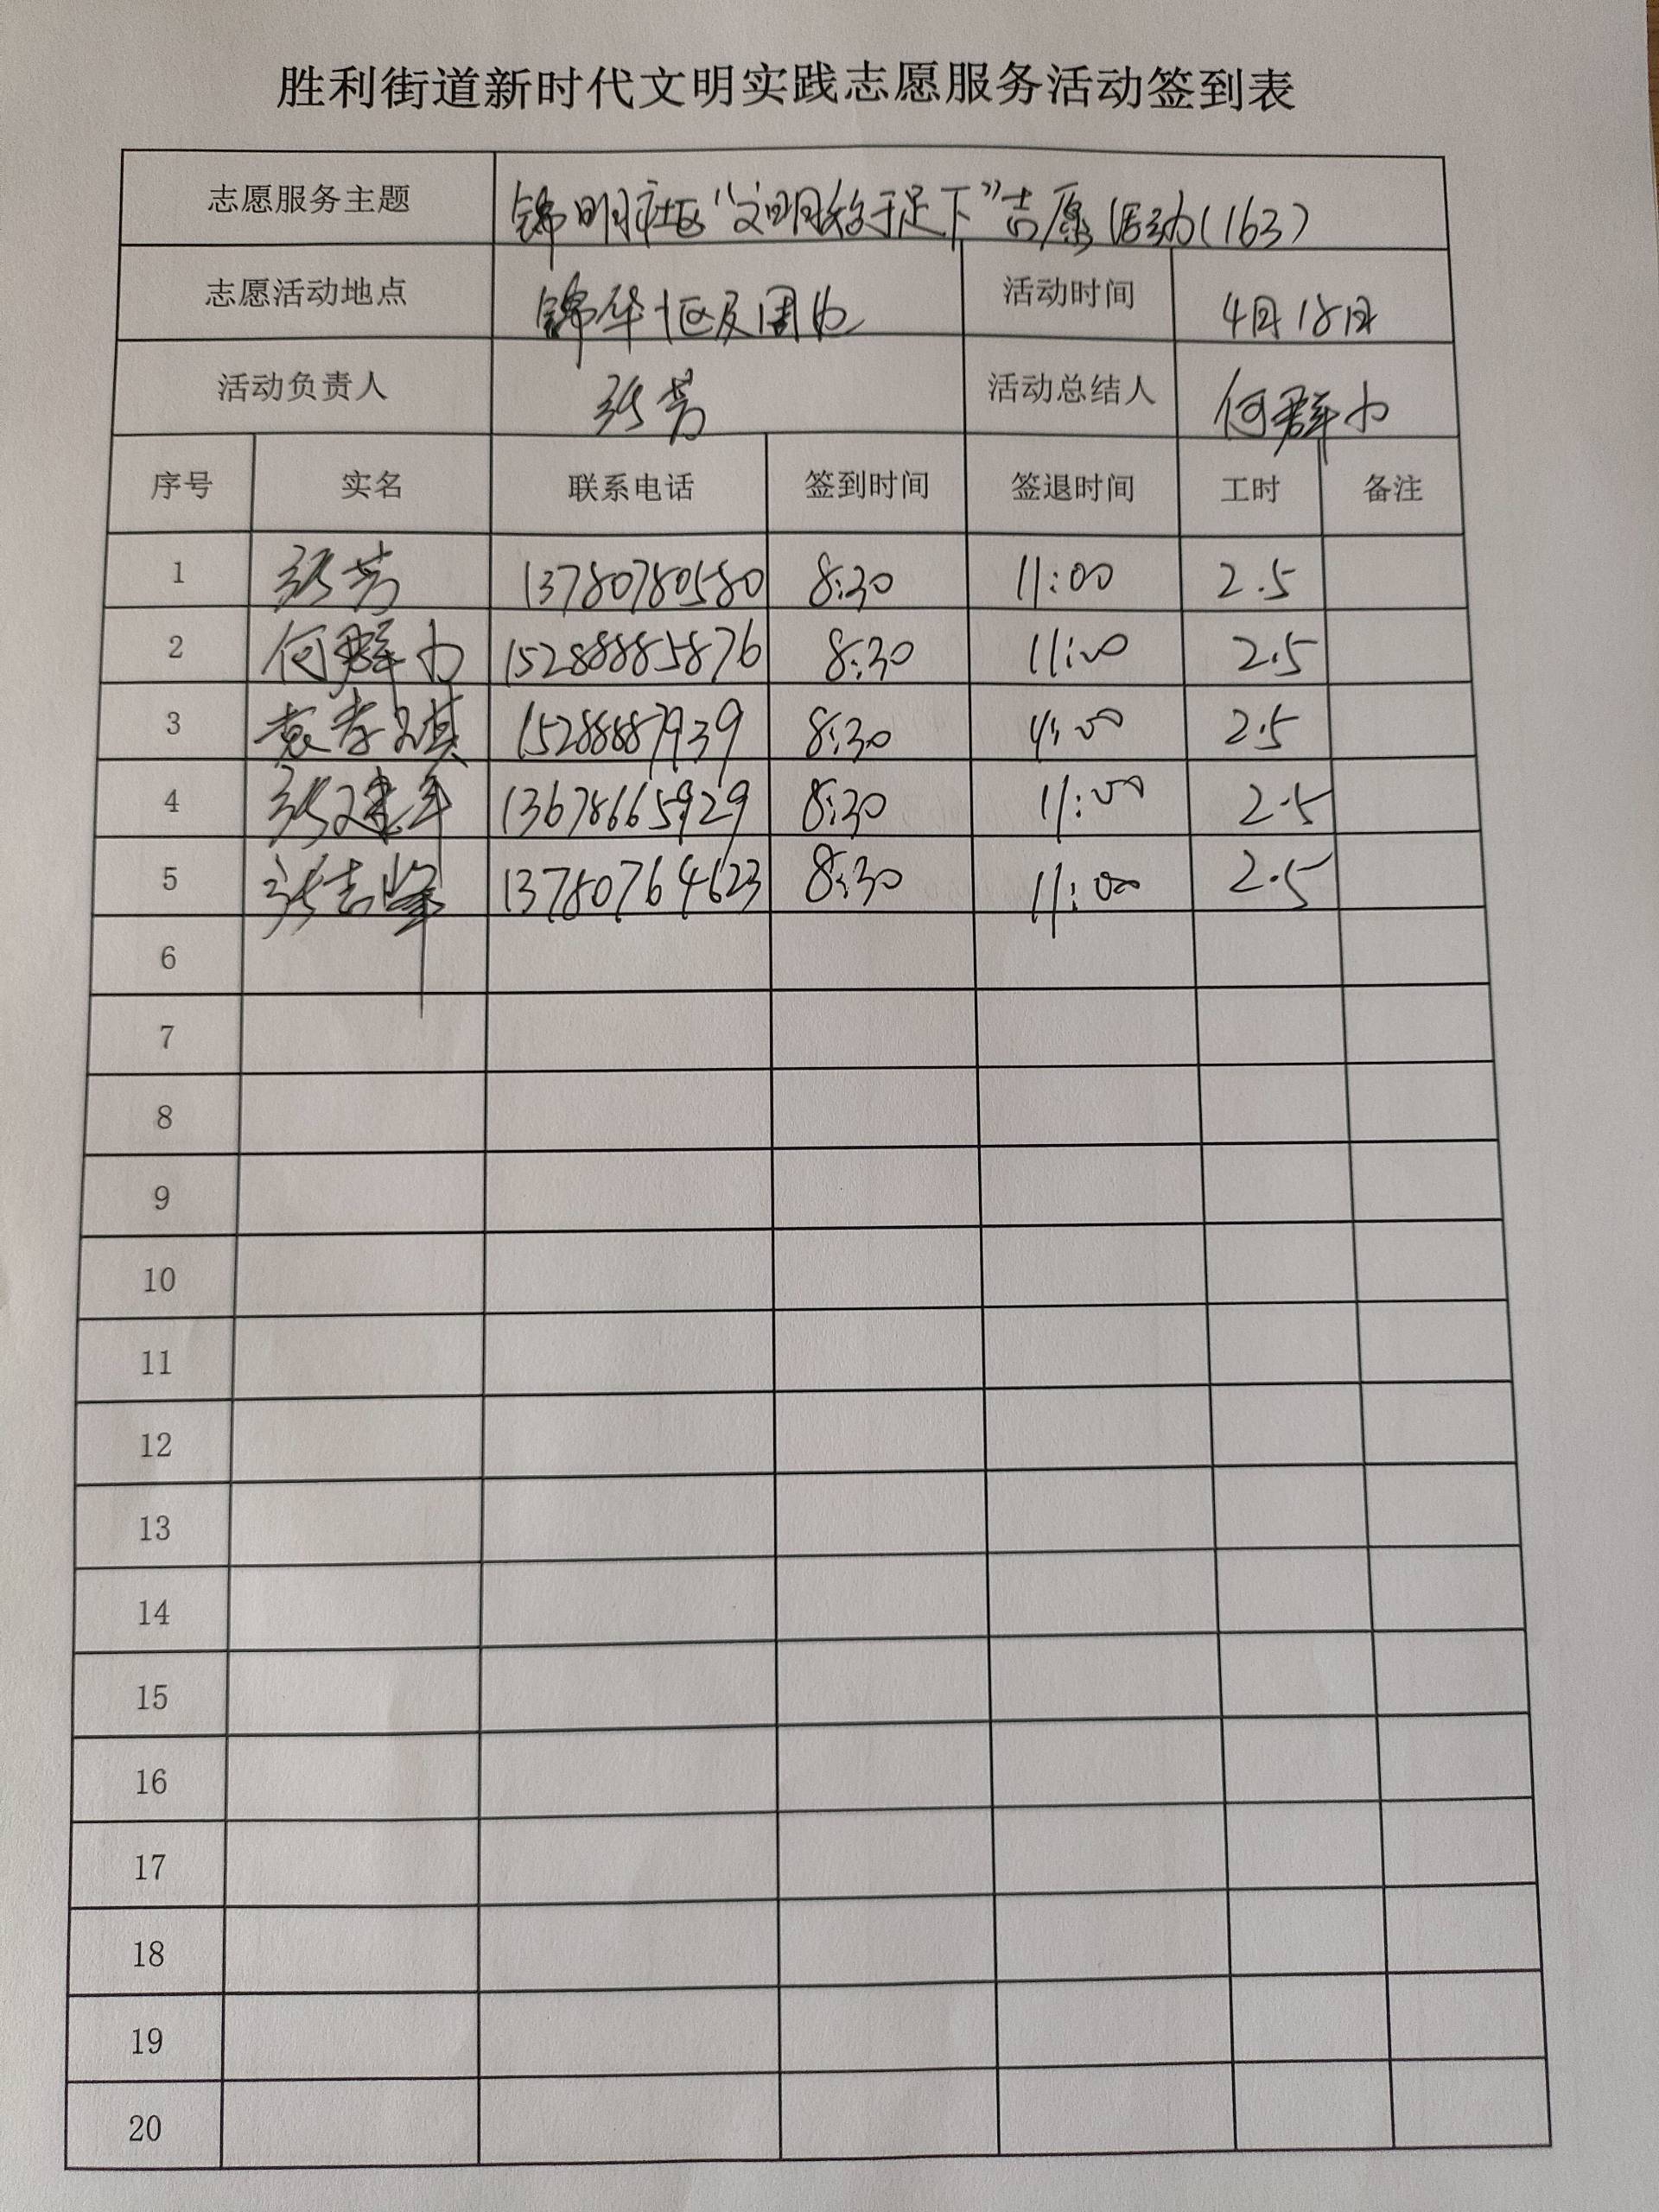 胜利街道新时代文明实践志愿服务活动签到表
志愿服务主题 锦明社区“文明始于足下”志愿活动(163)
志愿活动地点 锦华小区及周边 活动时间 4月18日
活动负责人 张芳 活动总结人 何群力
序号 实名 联系电话 签到时间 签退时间 工时 备注
1 张芳 13780780580 8:30 11:00 2.5
2 何群力 15288885876 8:30 11:00 2.5
3 袁孝 15288887939 8:30 11:00 2.5
4 张建军 13678665929 8:30 11:00 2.5
5 张志峰 13780764623 8:30 11:00 2.5
6
7
8
9
10
11
12
13
14
15
16
17
18
19
20